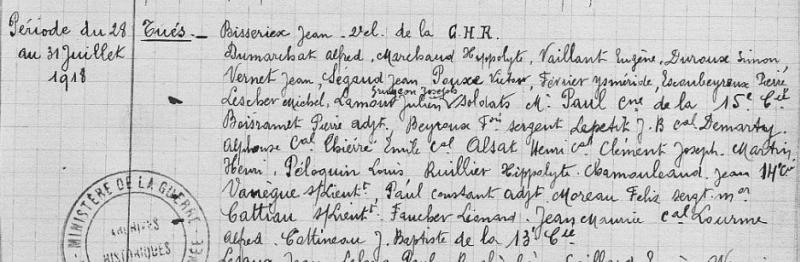 Période du 28 Tués._ Bisseriex Jean _ 2e cl. de la C.H.R.
au 31 Juillet Dumarchat Alfred, Marchaud Hippolyte, Vaillant Eugène, Duroux Simon,
1918 Vernet Jean, Legaud Jean Pouxe Victor, Février Ysméride, Escoubeyroux Pierre
Gurgeon Joseph
Lescher Michel, Lamout Julien, Soldats Mr Paul cne de la 15e Cie
Boissramet Pierre adjt. Beyroux Fois sergent Lepetit J.B cal Demartey
Alphonse Cal Thierré Emile cal Alsat Henri cal Clément Joseph. Martin
Henri, Péloquin Louis, Ruillier Hippolyte. Chamouleaud Jean 14e Cie
Vanègue s/s lient Paul constant adjt Moreau Felix sergt mor
Cattiau s/s lient Faucher Léonard. Jean Maurice cal Lourme
Alfred. Cattineau J. Baptiste de la 13e Cie
MINISTÈRE DE LA GUERRE
ARCHIVES
HISTORIQUES